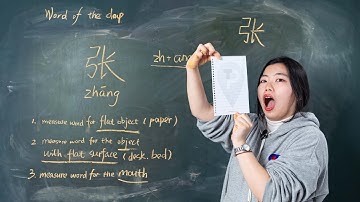 Word of the day
张
zhāng
张
zh + āng
1. measure word for flat object (paper)
2. measure word for the object
with flat surface (desk. bed)
3 measure word for the mouth